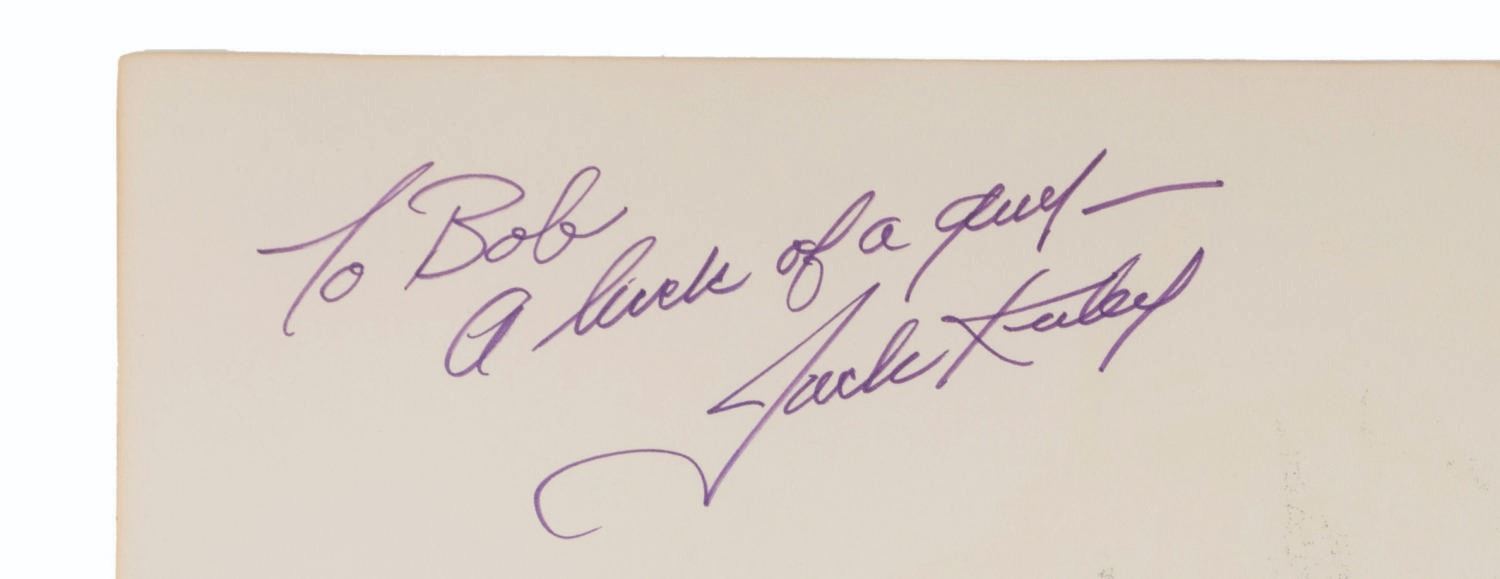 To Bob
A heck of a guy —
Jack Kirby